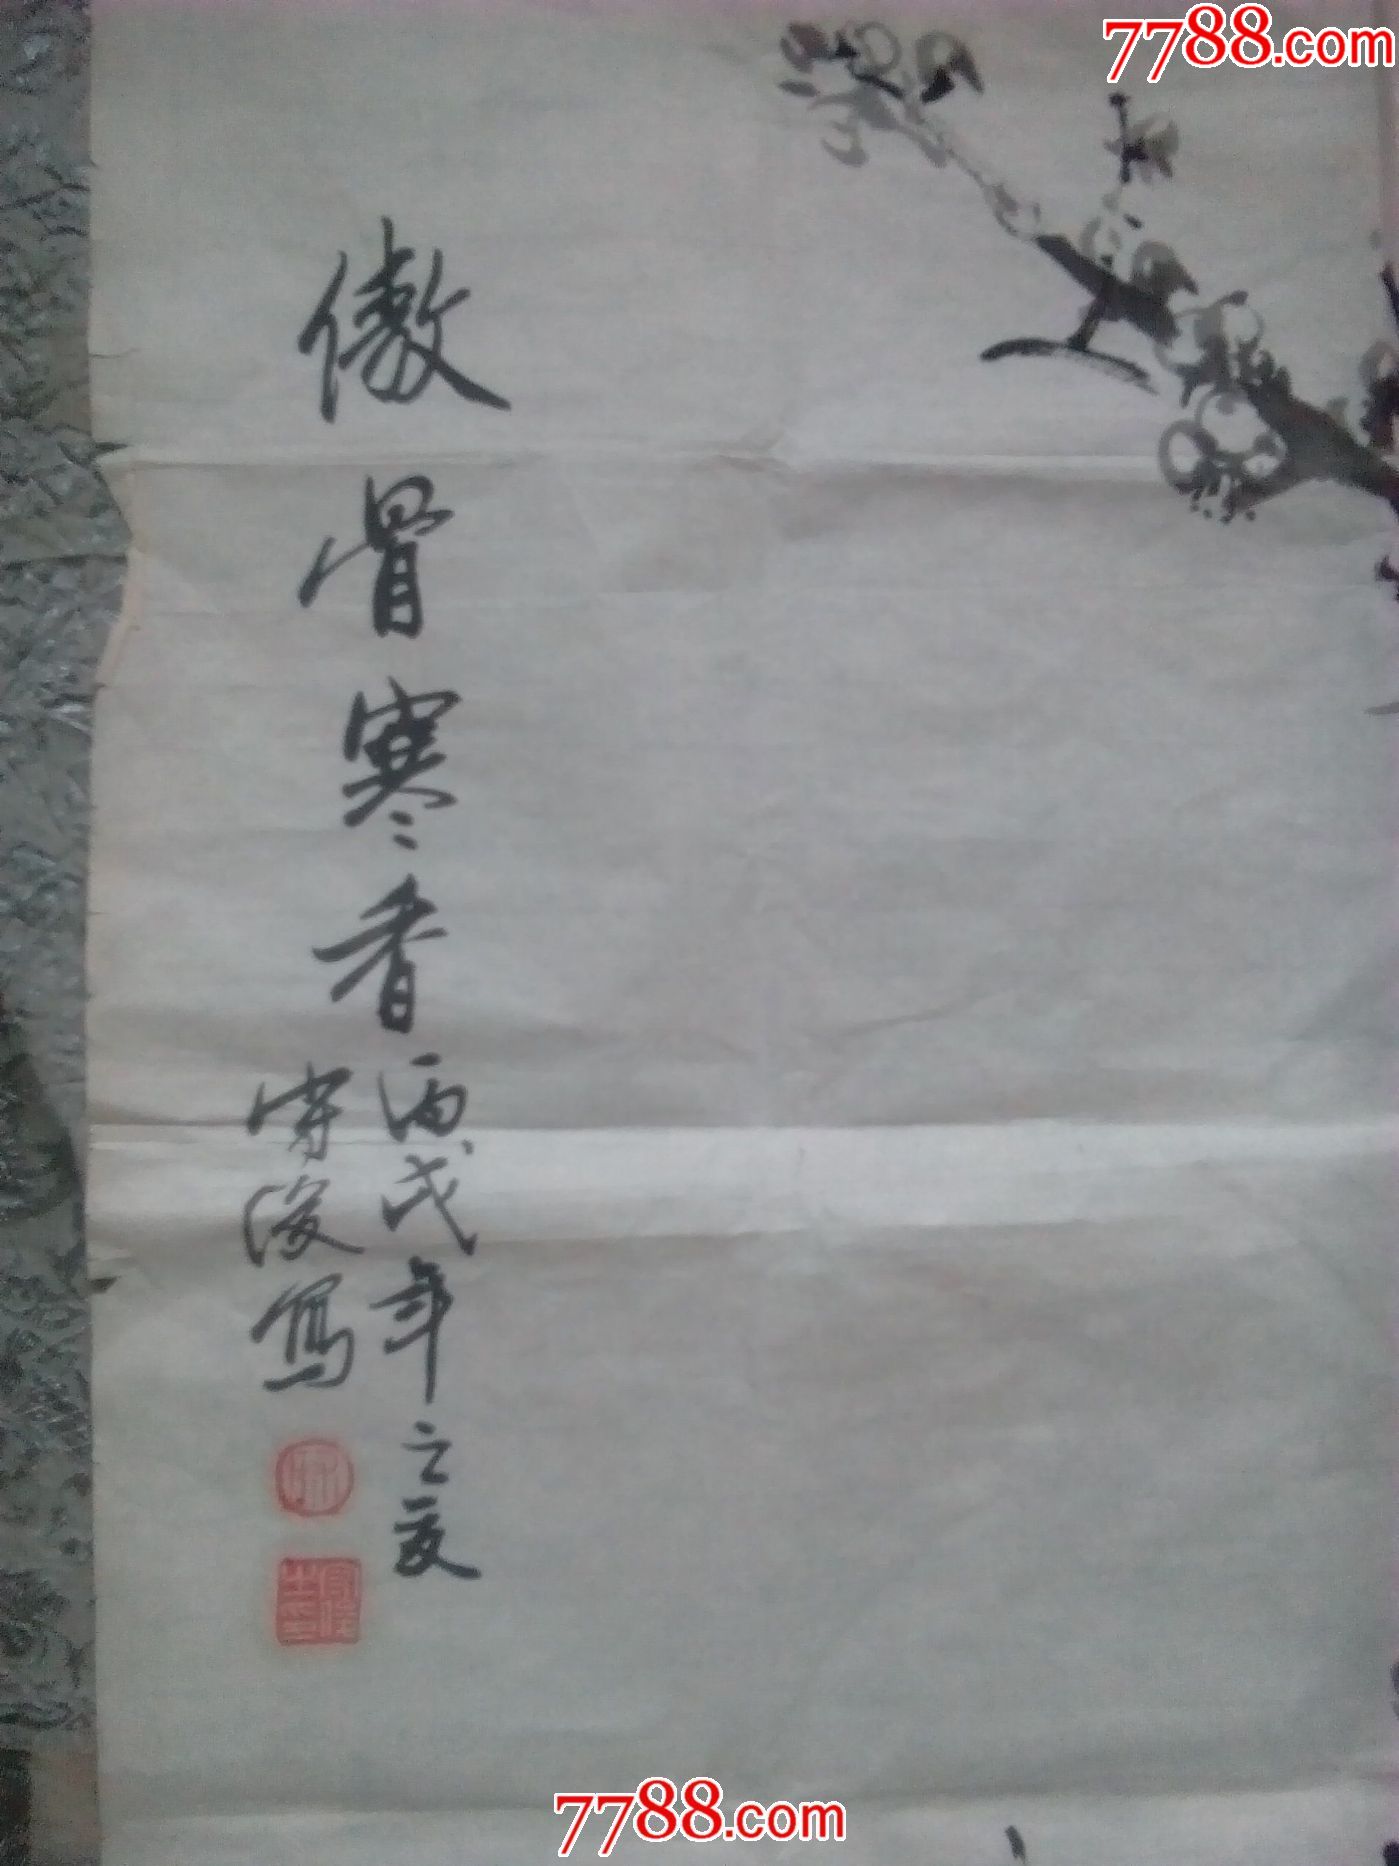 7788.com
傲骨寒香
丙戌年之夏
宋俊写
7788.com